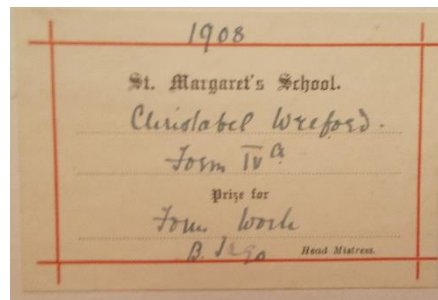 1908
St. Margaret's School.
Christabel Wreford.
Form IV a
Prize for
Form Work
Head Mistress.